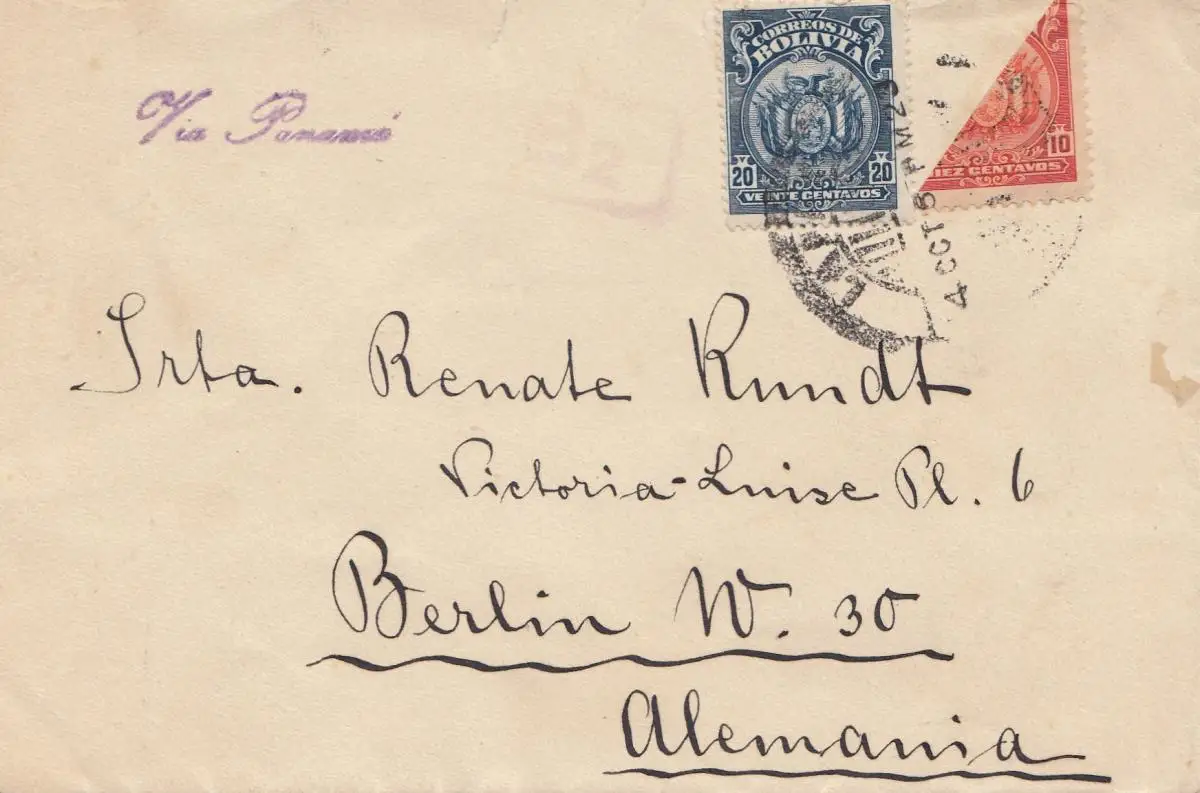 CORREOS DE
BOLIVIA
20 20
VEINTE CENTAVOS
10
IEZ CENTAVOS
Via Panamá
Srta. Renate Kundt
Victoria-Luise Pl. 6
Berlin W. 30
Alemania